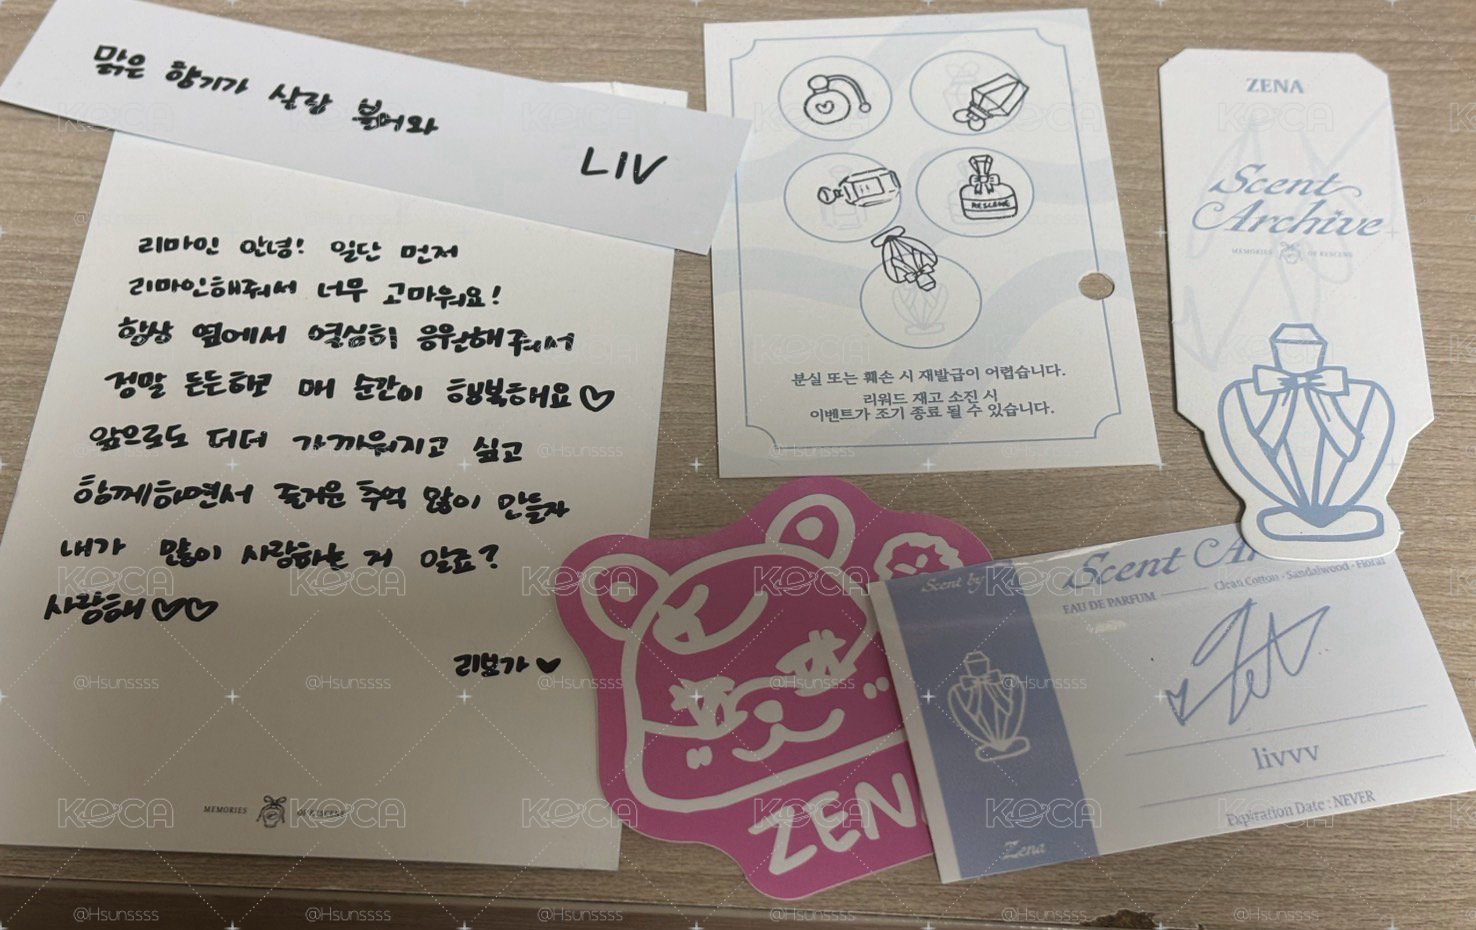 맑은 향기가 살랑 불어와
LIV
리마인 안녕! 일단 먼저
리마인해줘서 너무 고마워요!
항상 옆에서 열심히 응원해줘서
정말 든든하고 매 순간이 행복해요♡
앞으로도 더더 가까워지고 싶고
함께하면서 즐거운 추억 많이 만들자
내가 많이 사랑하는 거 알죠?
사랑해♡♡
리브가♥
MEMORIES OF RESCENE
RESCENE
분실 또는 훼손 시 재발급이 어렵습니다.
리워드 재고 소진 시
이벤트가 조기 종료 될 수 있습니다.
ZENA
Scent
Archive
MEMORIES OF RESCENE
ZEN
Scent by
Zena
Scent Ar
EAU DE PARFUM Clean Cotton · Sandalwood · Floral
livvv
Expiration Date : NEVER
KOCA
@Hsunssss